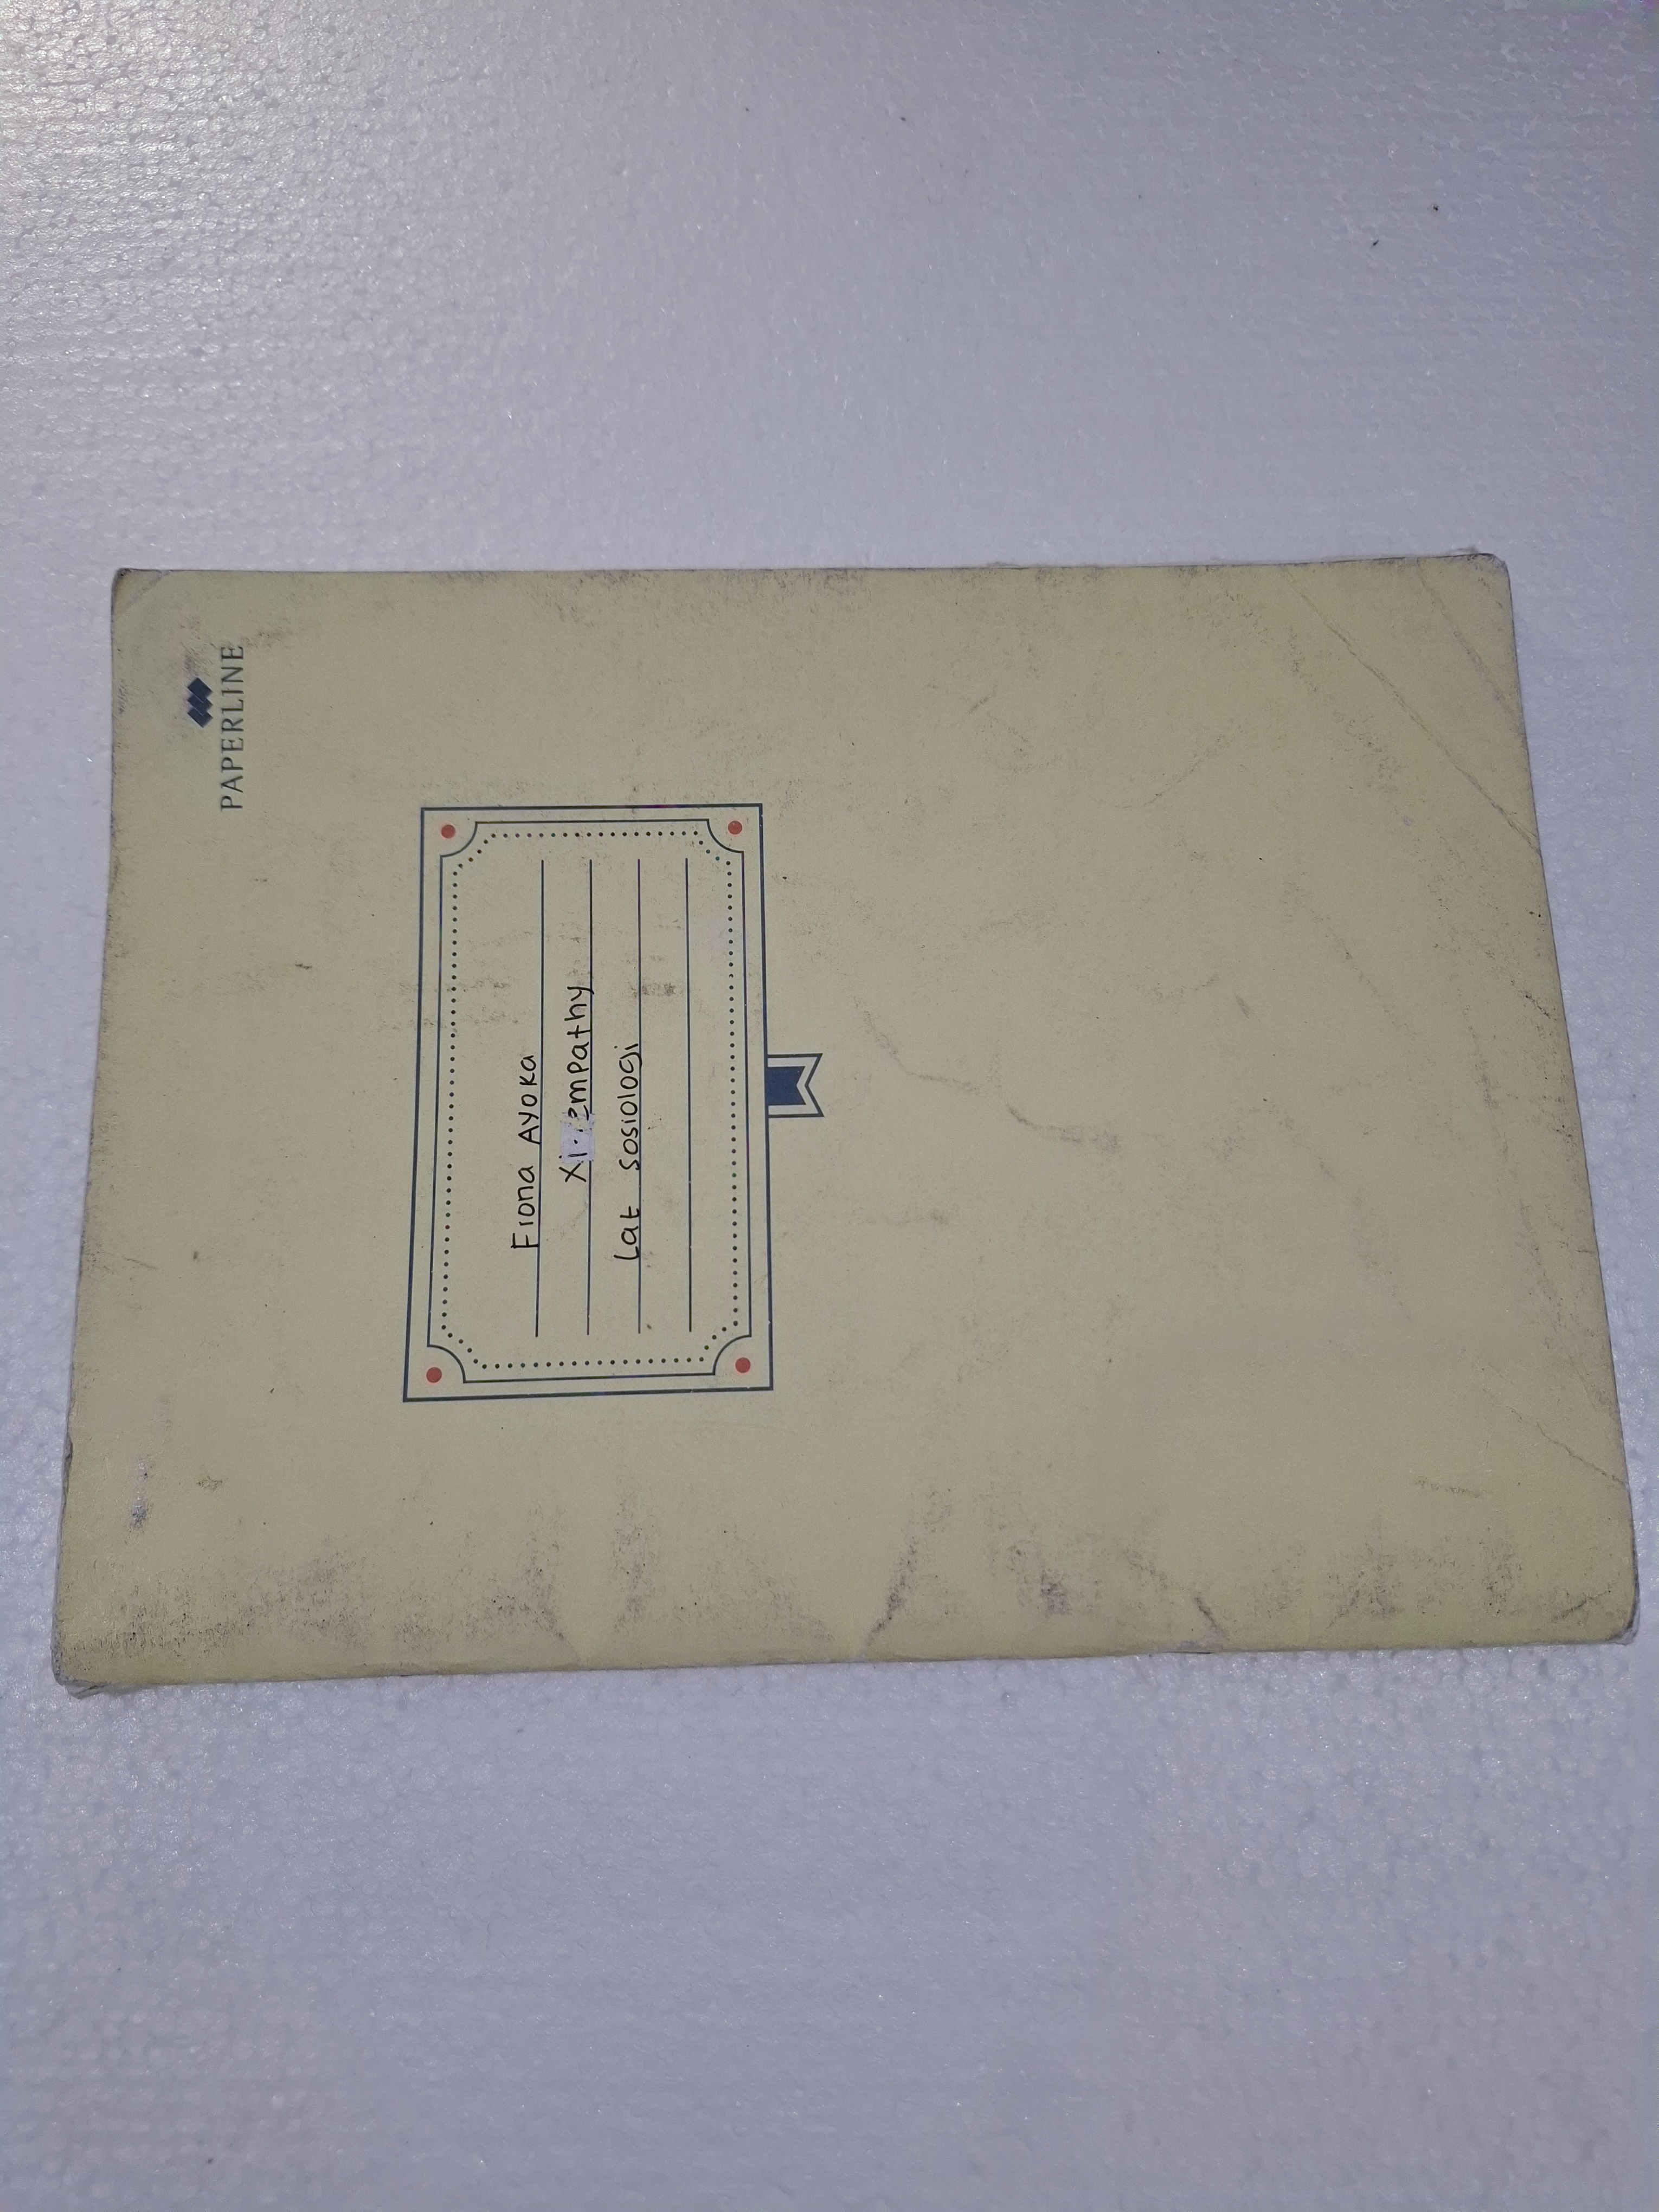 PAPERLINE
Fiona Ayoka
Xi.empathy
Lat sosiologi